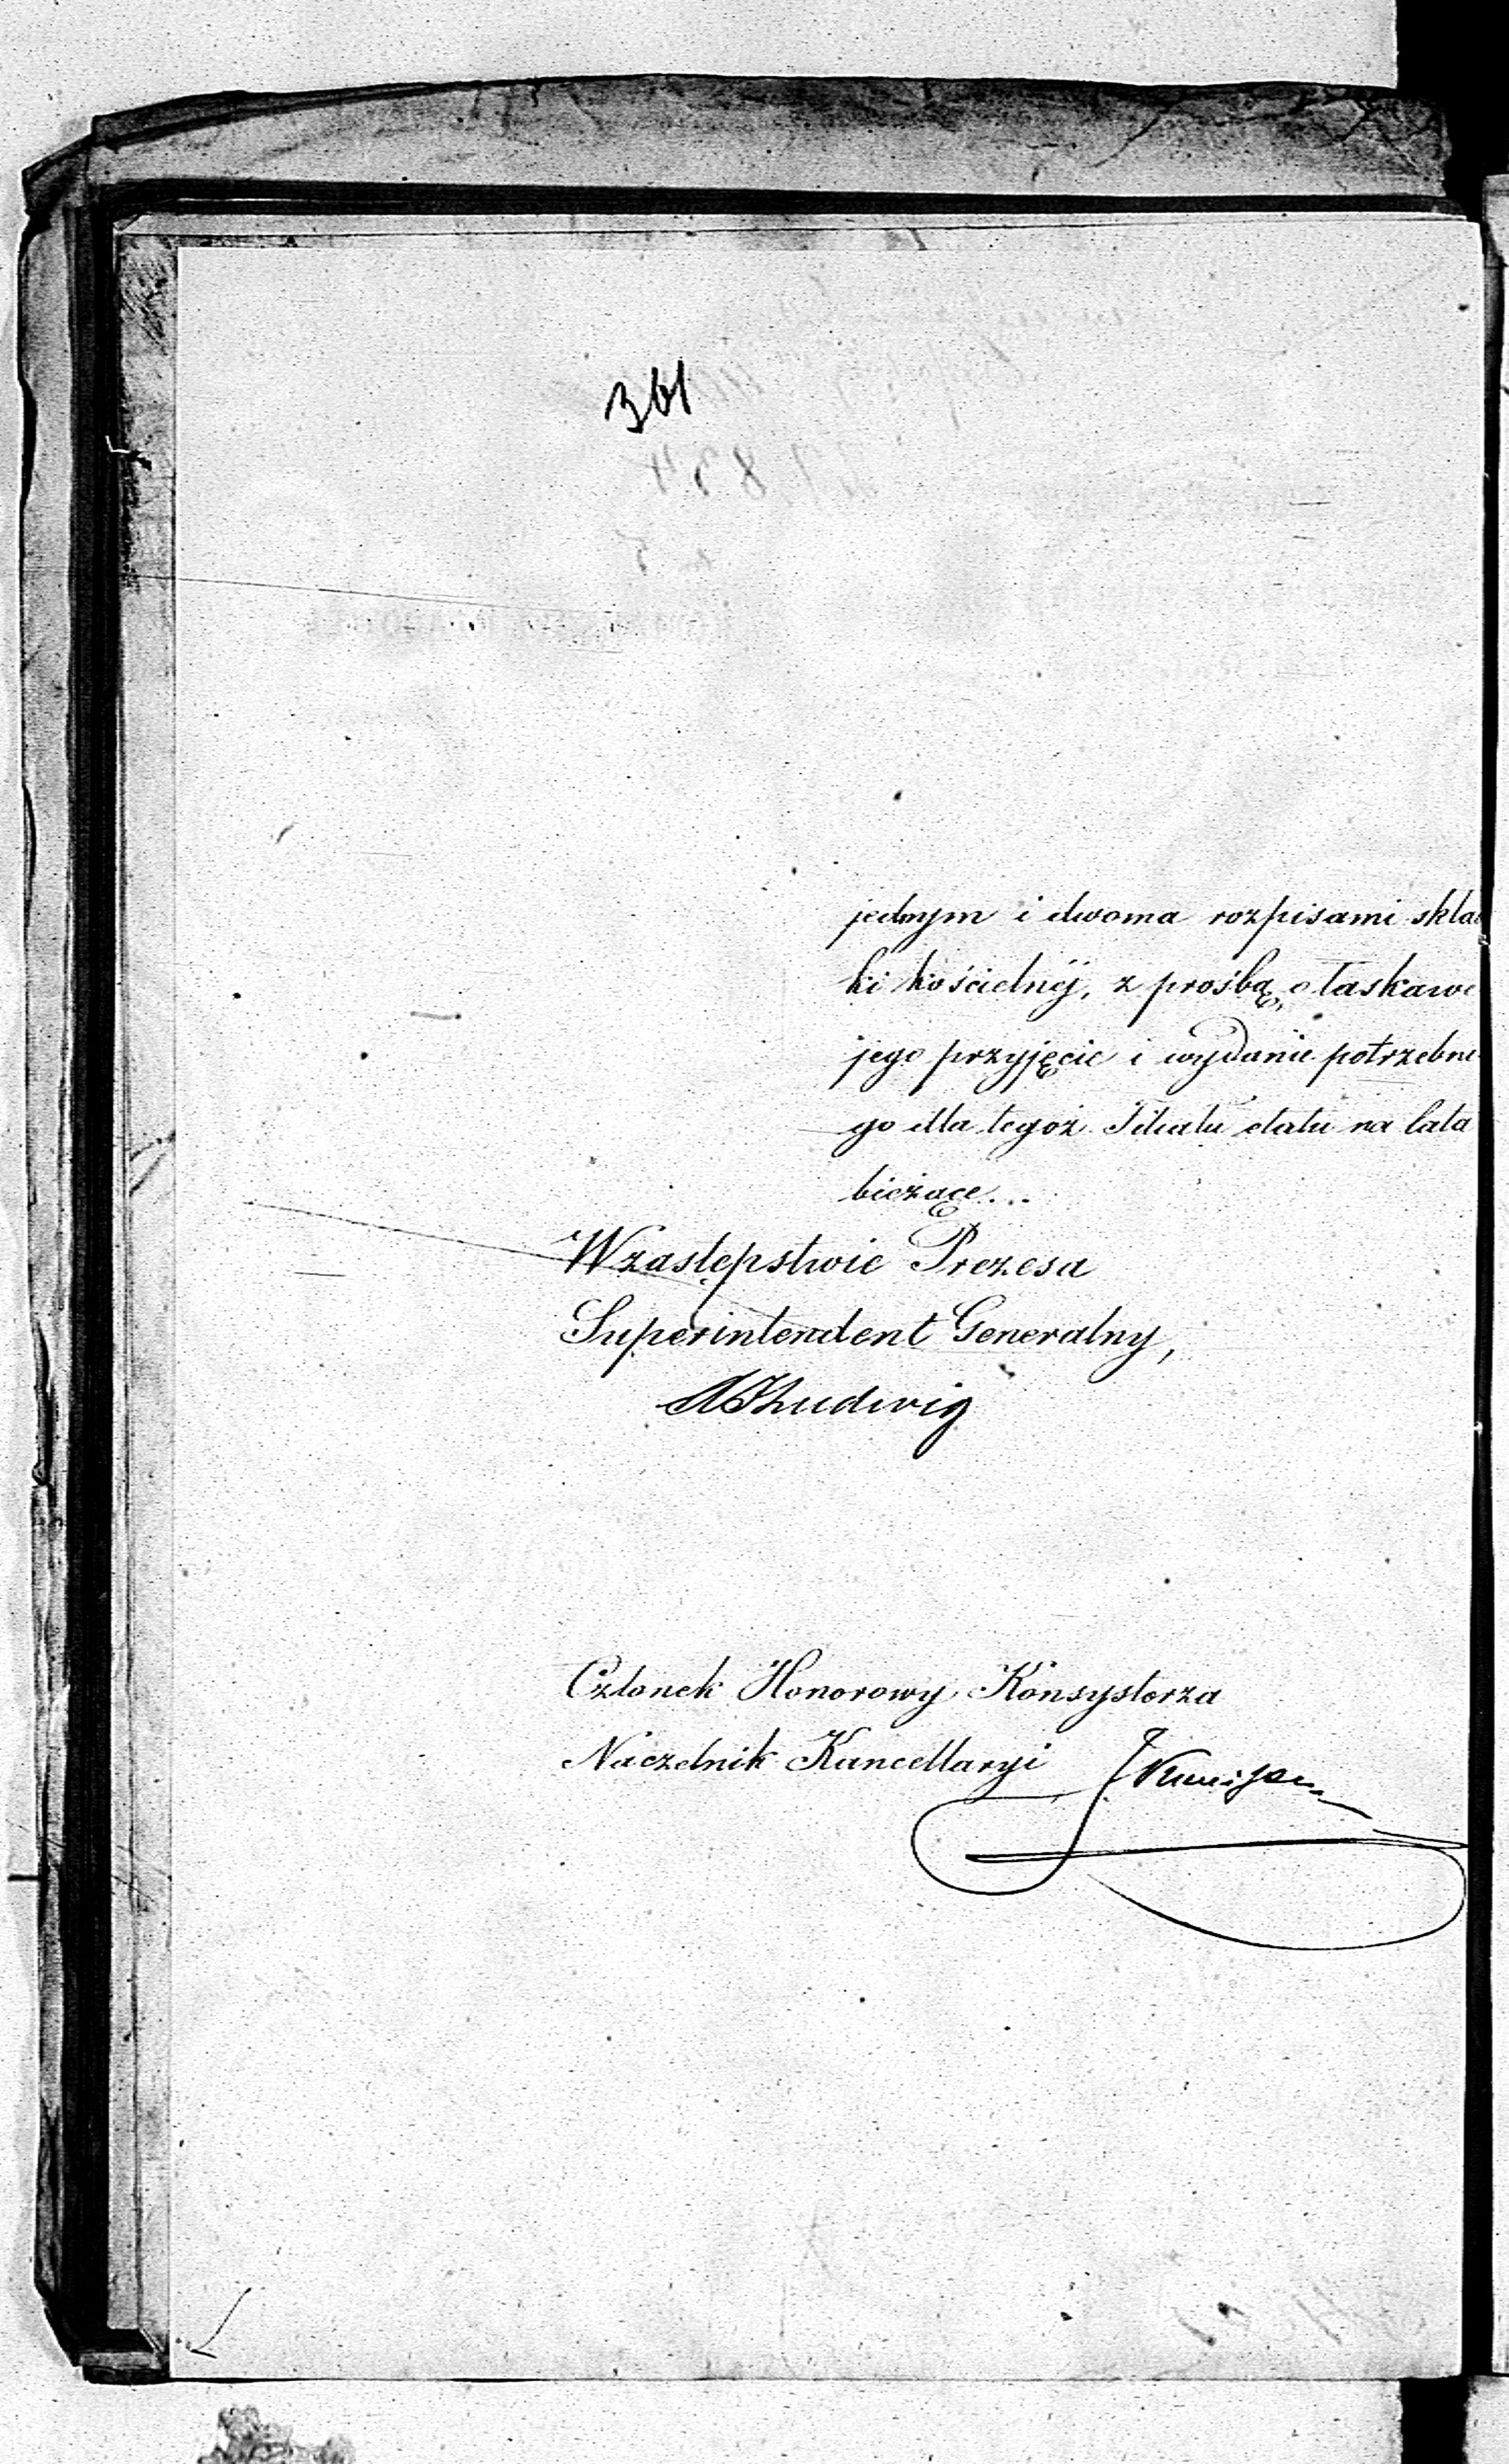 361
jednym i dwoma rozpisami skła
ki kościelnéj, z prośbą o łaskawe
jego przyjęcie i wydanie potrzebne
go dla tegoż Filiału etatu na lata
bieżące...
W zastępstwie Prezesa
Superintendent Generalny,
Ludwig
Członek Honorowy Konsystorza
Naczelnik Kancellaryi